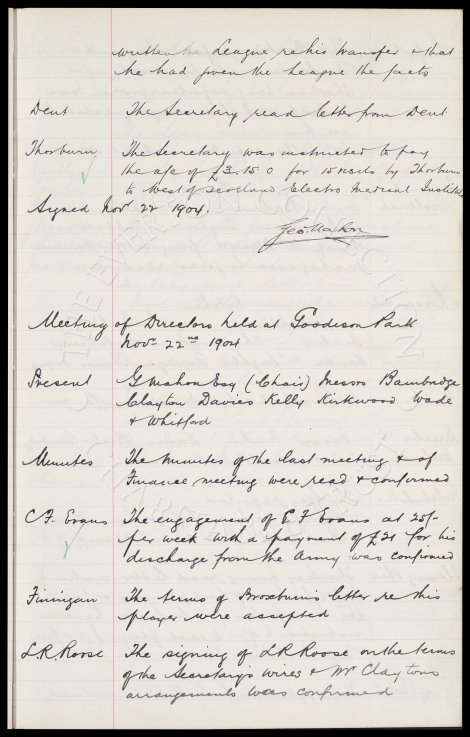 written the League re his transfer & that
he had given the League the facts
Dent The Secretary read letter from Dent
Thorburn The Secretary was instructed to pay
the a/c of £3.15.0 for 15 visits by Thorburn
to West of Scotland Electro Medical Institute
Signed Novr 22 1904.
Geo Mahon
Meeting of Directors held at Goodison Park
Novr 22nd 1904
Present G Mahon Esq (Chair) Messrs Bainbridge
Clayton Davies Kelly Kirkwood Wade
& Whitford
Minutes The Minutes of the last meeting & of
Finance meeting were read & confirmed
C.F. Evans The engagement of C F Evans at 25/-
per week with a payment of £21 for his
discharge from the Army was confirmed
Finnigan The terms of Broxburn's letter re this
player were accepted
L.R. Roose The signing of L R Roose on the terms
of the Secretary's wires & Mr Clayton's
arrangements was confirmed
THE EVERTON COLLECTION